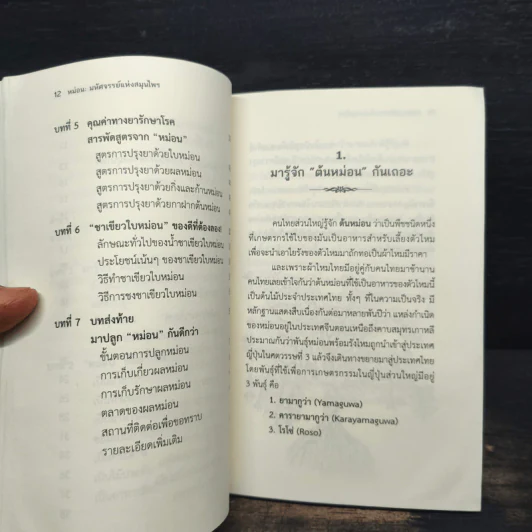 12 หม่อน: มหัศจรรย์แห่งสมุนไพร
บทที่ 5 คุณค่าทางยารักษาโรค
สารพัดสูตรจาก "หม่อน"
สูตรการปรุงยาด้วยใบหม่อน
สูตรการปรุงยาด้วยผลหม่อน
สูตรการปรุงยาด้วยกิ่งและก้านหม่อน
สูตรการปรุงยาด้วยกาฝากต้นหม่อน
บทที่ 6 "ชาเขียวใบหม่อน" ของดีที่ต้องลอง
ลักษณะทั่วไปของน้ำชาเขียวใบหม่อน
ประโยชน์เน้นๆ ของชาเขียวใบหม่อน
วิธีทำชาเขียวใบหม่อน
วิธีการชงชาเขียวใบหม่อน
บทที่ 7 บทส่งท้าย
มาปลูก "หม่อน" กันดีกว่า
ขั้นตอนการปลูกหม่อน
การเก็บเกี่ยวผลหม่อน
การเก็บรักษาผลหม่อน
ตลาดของผลหม่อน
สถานที่ติดต่อเพื่อขอทราบ
รายละเอียดเพิ่มเติม
1.
มารู้จัก "ต้นหม่อน" กันเถอะ
คนไทยส่วนใหญ่รู้จัก ต้นหม่อน ว่าเป็นพืชชนิดหนึ่ง
ที่เกษตรกรใช้ใบของมันเป็นอาหารสำหรับเลี้ยงตัวไหม
เพื่อจะนำเอาใยรังของตัวไหมมาถักทอเป็นผ้าไหมมีราคา
และเพราะผ้าไหมไทยมีอยู่คู่กับคนไทยมาช้านาน
คนไทยเลยเข้าใจกันว่าต้นหม่อนที่ใช้เป็นอาหารของตัวไหมนี้
เป็นต้นไม้ประจำประเทศไทย ทั้งๆ ที่ในความเป็นจริง มี
หลักฐานแสดงสืบเนื่องกันต่อมาหลายพันปีว่า แหล่งกำเนิด
ของหม่อนอยู่ในประเทศจีนตอนเหนือถึงคาบสมุทรเกาหลี
ประมาณกันว่าพันธุ์หม่อนพร้อมรังไหมถูกนำเข้าสู่ประเทศ
ญี่ปุ่นในศตวรรษที่ 3 แล้วจึงเดินทางขยายมาสู่ประเทศไทย
โดยพันธุ์ที่ใช้เพื่อการเกษตรกรรมในญี่ปุ่นส่วนใหญ่มีอยู่
3 พันธุ์ คือ
1. ยามากูว่า (Yamaguwa)
2. คารายามากูว่า (Karayamaguwa)
3. โรโซ่ (Roso)